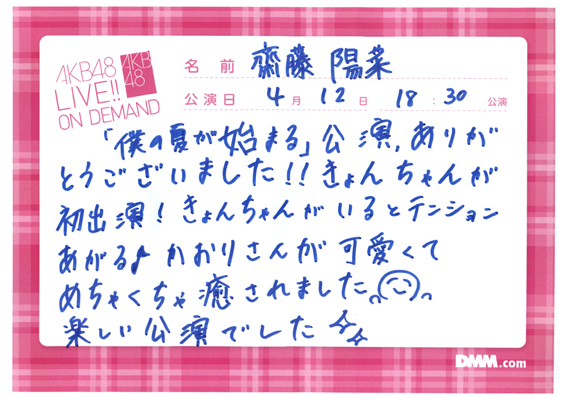 AKB48
LIVE!!
ON DEMAND
AKB
48
名前 齋藤 陽菜
公演日 4月12日 18:30公演
「僕の夏が始まる」公演、ありが
とうございました!!きょんちゃんが
初出演!きょんちゃんがいるとテンション
あがる♪かおりさんが可愛くて
めちゃくちゃ癒されました
楽しい公演でした
DMM.com